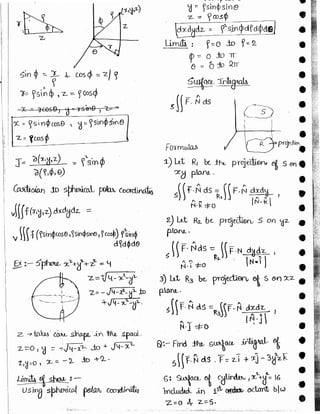 (x,y,z)
sin φ = r/ρ cos φ = z/ρ
r = ρ sin φ , z = ρ cos φ
x = r cos θ , y = r sin θ , z =
x = ρ sin φ cos θ , y = ρ sin φ sin θ
z = ρ cos φ
J = ∂(x,y,z)/∂(ρ,φ,θ) = ρ² sin φ
Cartesian to spherical polar coordinates
∭ f(x,y,z) dxdydz =
∭ f(ρ sin φ cos θ, ρ sin φ sin θ, ρ cos φ) ρ² sin φ
dρ dφ dθ
Ex :- Sphere x²+y²+z² = 4
z = √4-x²-y²
z = -√4-x²-y² to
+√4-x²-y²
z → takes same shape in the space
z=0, y = -√4-x² to + √4-x²
z,y=0, x = -2 to +2.
Limits of sphere :-
Using spherical polar coordinates
y = ρ sin φ sin θ
z = ρ cos φ
dxdydz = ρ² sin φ dρ dφ dθ
Limits : ρ = 0 to ρ = 2
φ = 0 to π
θ = 0 to 2π
Surface Integrals
∬ F. N̂ ds
S
S
R → projection
Formulas
1) Let R₁ be the projection of S on
xy plane.
∬ F. N̂ ds = ∬ F. N̂ dxdy / |N̂.k̄| ,
S R₁
N̂.k̄ ≠ 0
2) Let R₂ be projection S on yz
plane.
∬ F. N̂ds = ∬ F. N̂ dydz / |N̂.ī| ,
S R₂
N̂.ī ≠ 0
3) Let R₃ be projection of S on xz
plane.
∬ F. N̂ ds = ∬ F. N̂ dxdz / |N̂.j̄| ,
S R₃
N̂.j̄ ≠ 0
Q:- Find the surface integral of
∬ F. N̂ds . F = zī + xj̄ - 3y²zk̄
S
S: Surface of cylinder , x²+y² = 16
included in 1st octant b/w
z=0 & z=5.